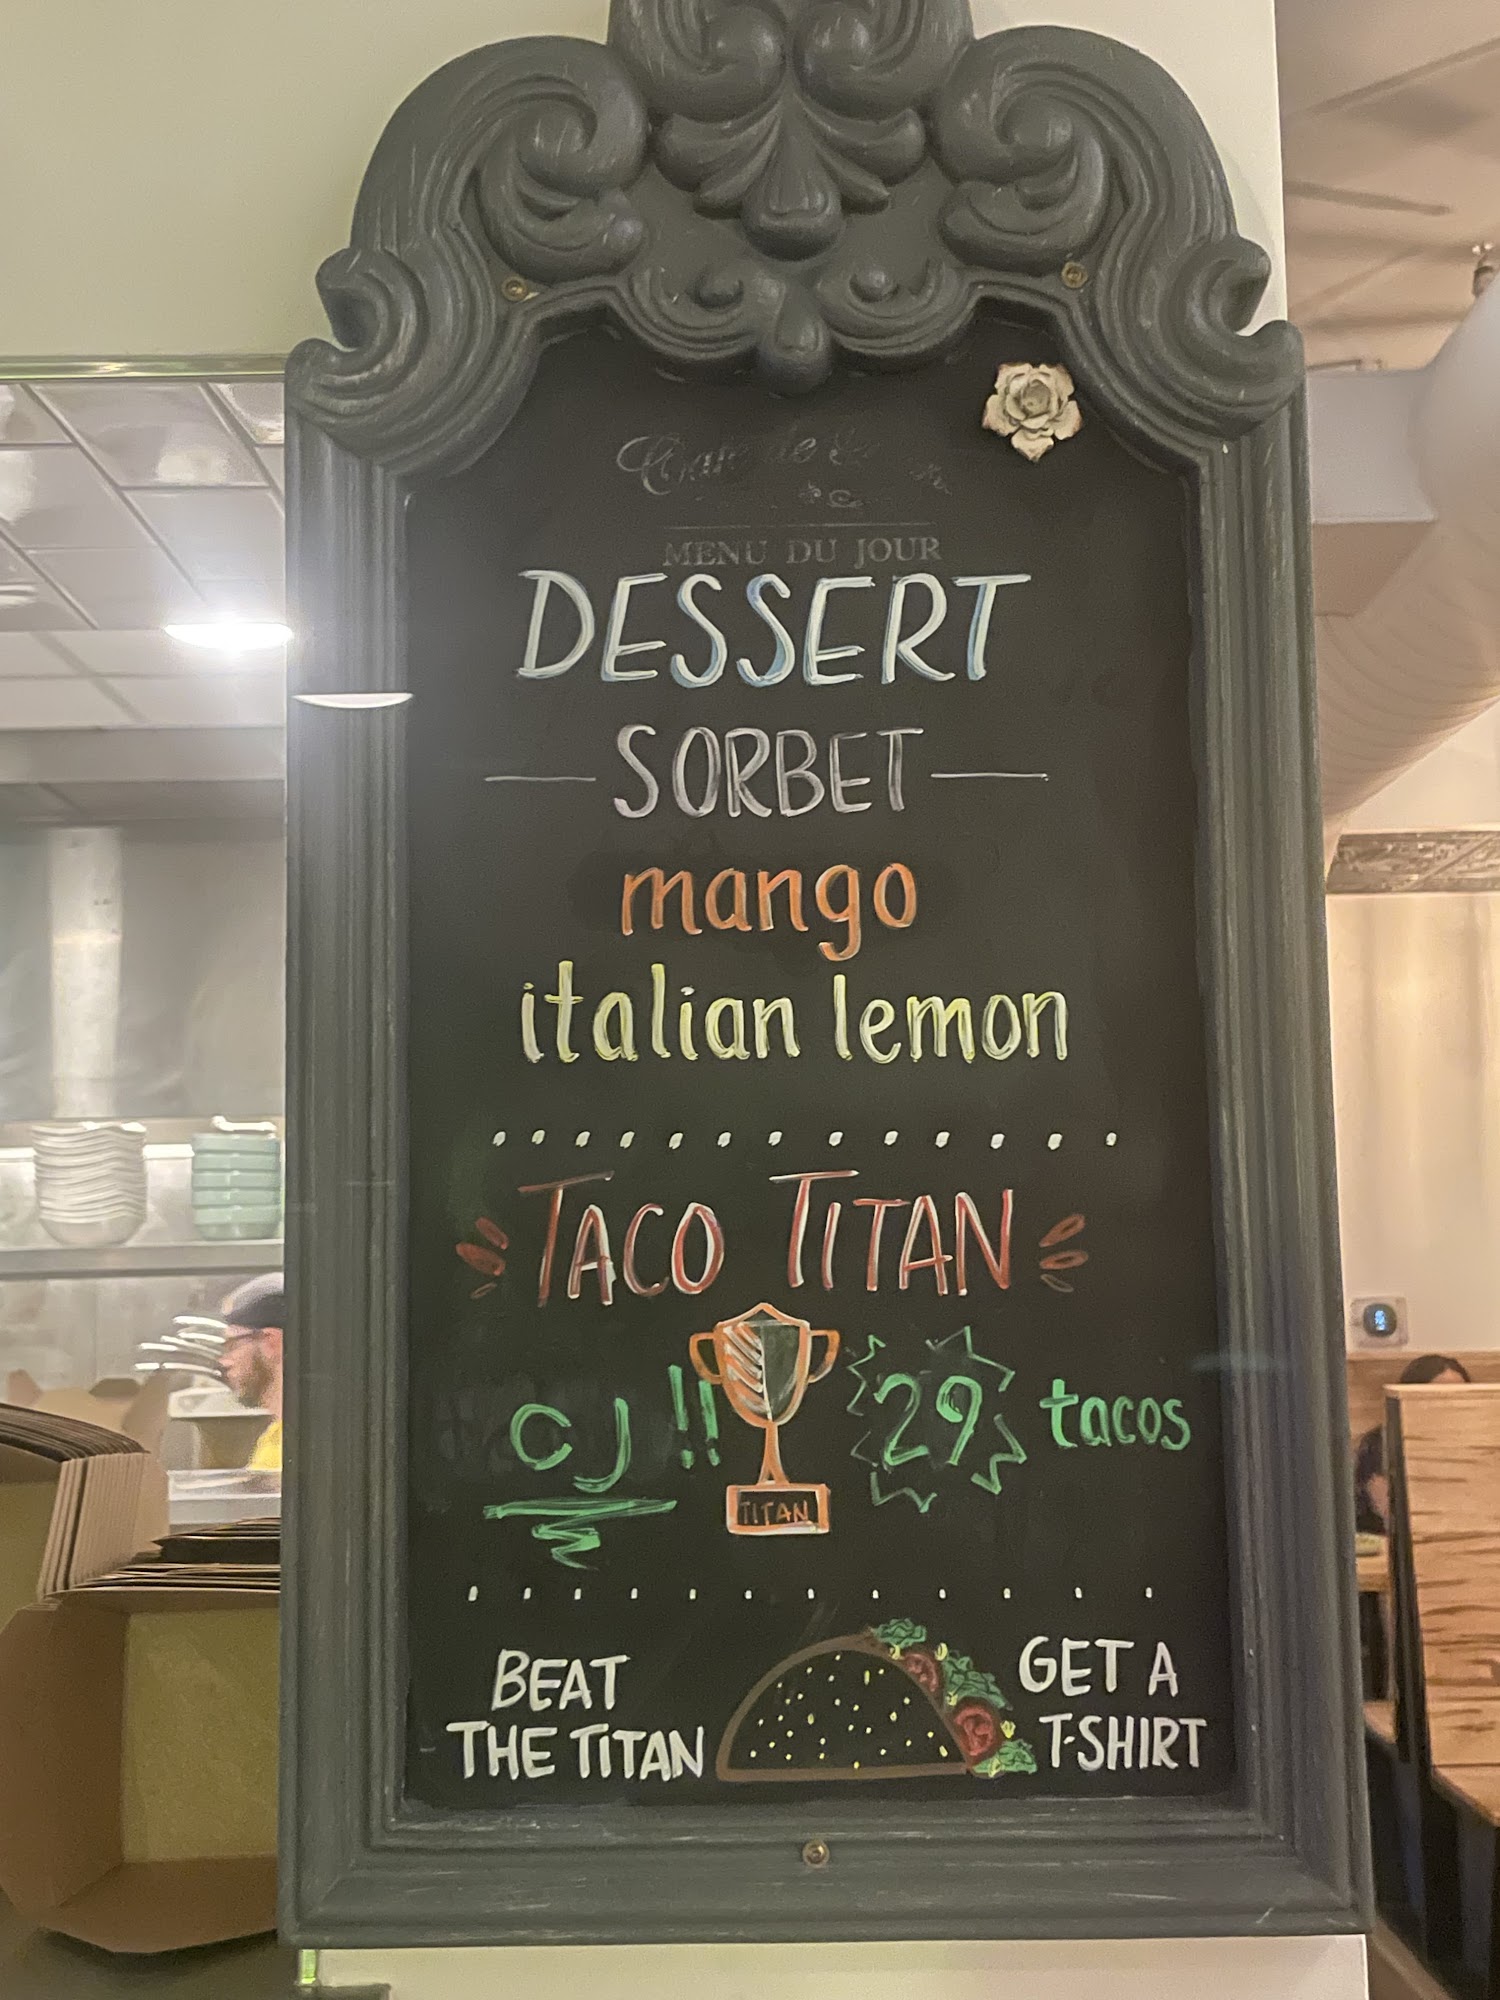 MENU DU JOUR
DESSERT
SORBET
mango
italian lemon
TACO TITAN
CJ !!
TITAN
29 tacos
BEAT
THE TITAN
GET A
T-SHIRT